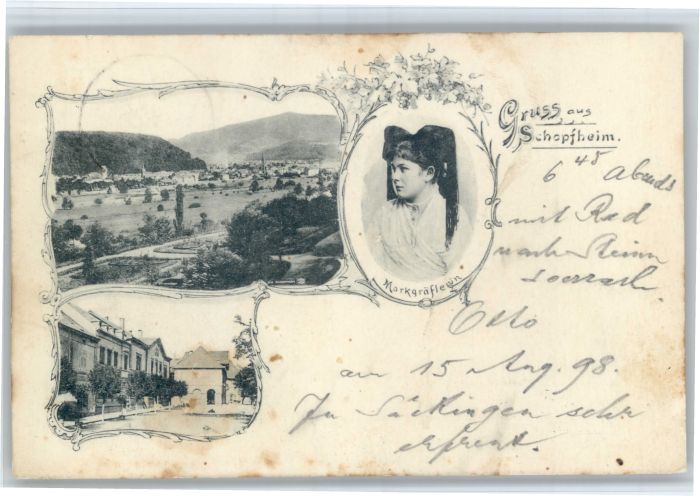 Gruss aus
Schopfheim.
Markgräflerin
6 45 Abends
mit Rad
nach
Loerrach
Otto
am 15 Aug. 98.
In Säckingen sehr
erfreut.